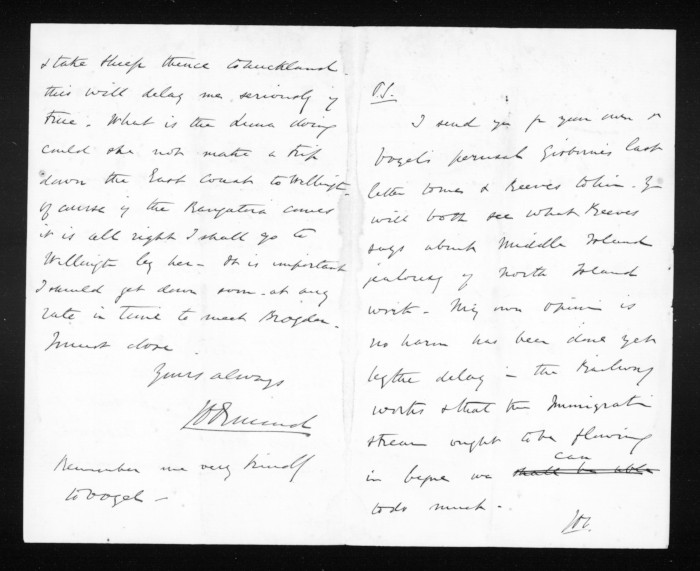 & take sheep thence to Auckland.
this will delay me seriously if
true. What is the Luna doing
could she not make a trip
down the East Coast to Wellingtn.
Of course if the Rangatira comes
it is all right I shall go to
Wellingtn by her. It is important
I should get down soon. at any
rate in time to meet Brogden.
I must close
Yours always
JD Ormond
Remember me very kindly
to Vogel —
P.S.
I send you for your own &
Vogel's perusal Gisborne's last
letter to me & Reeves to him. You
will both see what Reeves
says about Middle Island
jealousy of North Island
work. My own opinion is
no harm has been done yet
by the delay in the Railway
works & that the Immigratn
stream ought to be flowing
in before we <del>shall be able</del> can
to do much.
JDO.